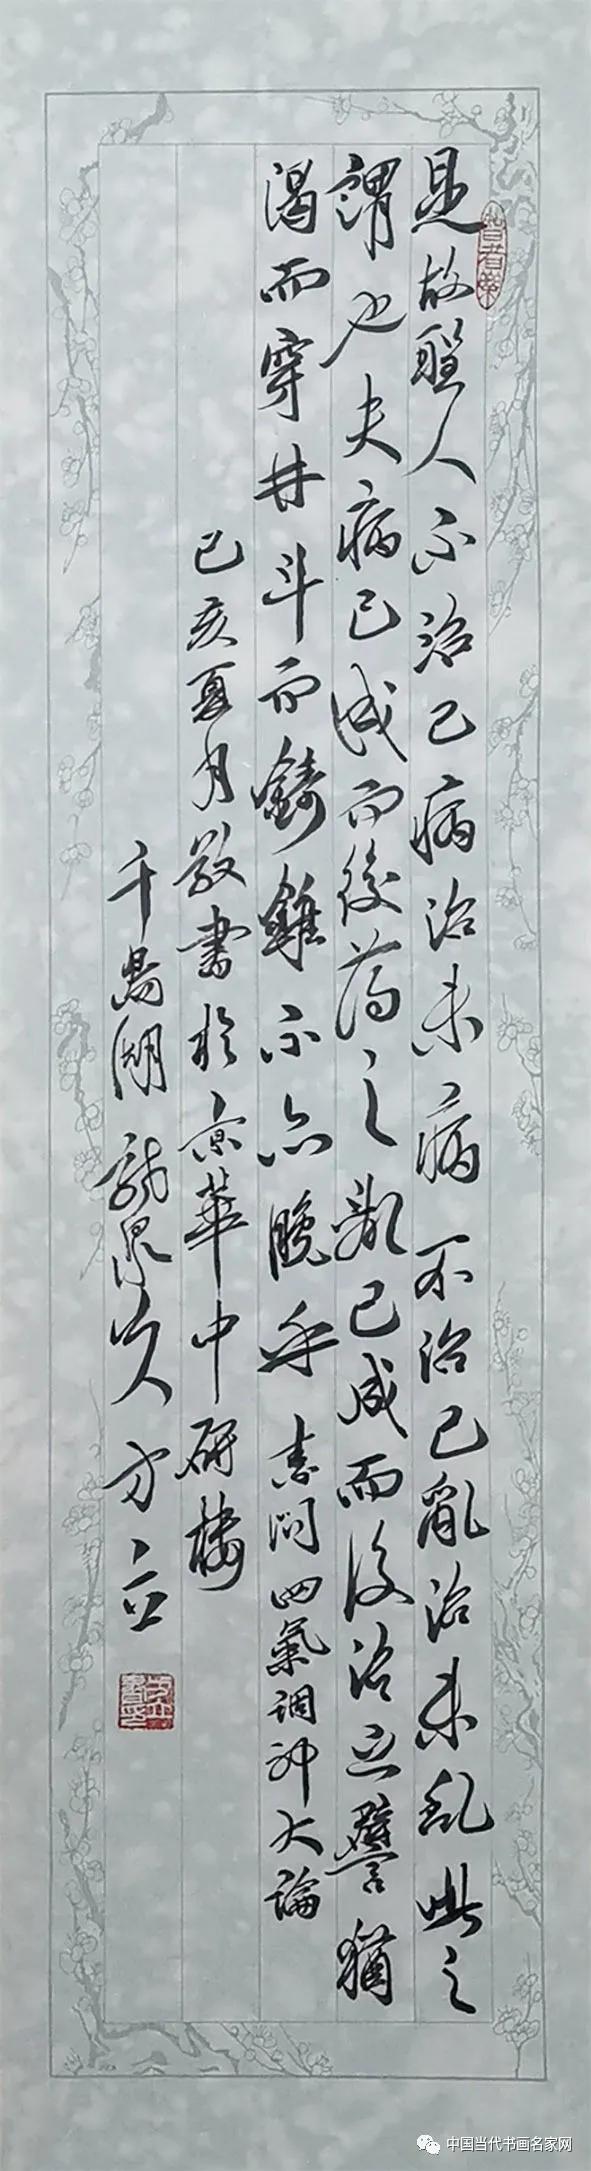 是故聖人不治已病治未病不治已亂治未乱此之
謂也夫病已成而後药之亂已成而後治之譬猶
渴而穿井斗而鑄錐不亦晚乎素问四氣調神大論
己亥夏月敬書於京華中研樓
千島湖龍泉山人方立
中国当代书画名家网